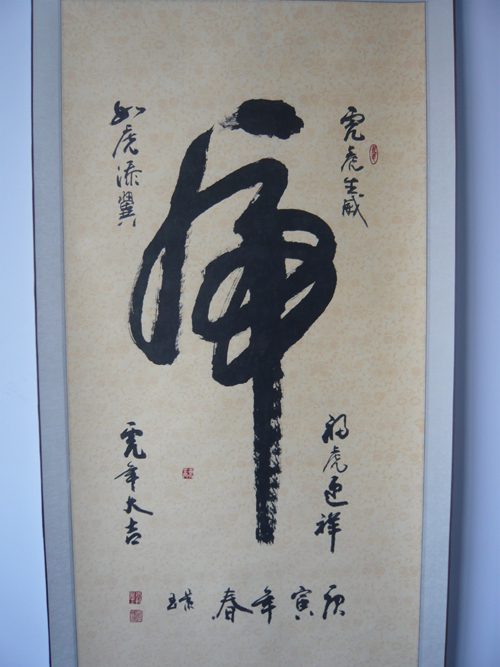 虎虎生威
福虎迎祥
虎
如虎添翼
虎年大吉
庚寅年春